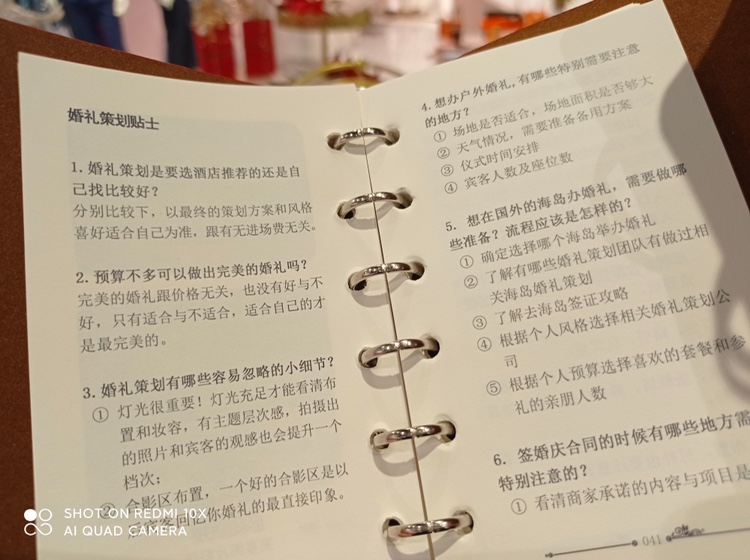 婚礼策划贴士
1.婚礼策划是要选酒店推荐的还是自
己找比较好?
分别比较下，以最终的策划方案和风格
喜好适合自己为准，跟有无进场费无关。
2.预算不多可以做出完美的婚礼吗?
完美的婚礼跟价格无关，也没有好与不
好，只有适合与不适合，适合自己的才
是最完美的。
3.婚礼策划有哪些容易忽略的小细节?
① 灯光很重要！灯光充足才能看清布
置和妆容，有主题层次感，拍摄出
的照片和宾客的观感也会提升一个
档次；
② 合影区布置，一个好的合影区是以
宾客回忆你婚礼的最直接印象。
4.想办户外婚礼,有哪些特别需要注意
的地方?
① 场地是否适合，场地面积是否够大
② 天气情况，需要准备备用方案
③ 仪式时间安排
④ 宾客人数及座位数
5. 想在国外的海岛办婚礼，需要做哪
些准备？流程应该是怎样的?
① 确定选择哪个海岛举办婚礼
② 了解有哪些婚礼策划团队有做过相
关海岛婚礼策划
③ 了解去海岛签证攻略
④ 根据个人风格选择相关婚礼策划公
司
⑤ 根据个人预算选择喜欢的套餐和参
礼的亲朋人数
6. 签婚庆合同的时候有哪些地方需
特别注意的?
① 看清商家承诺的内容与项目是
041
SHOT ON REDMI 10X
AI QUAD CAMERA